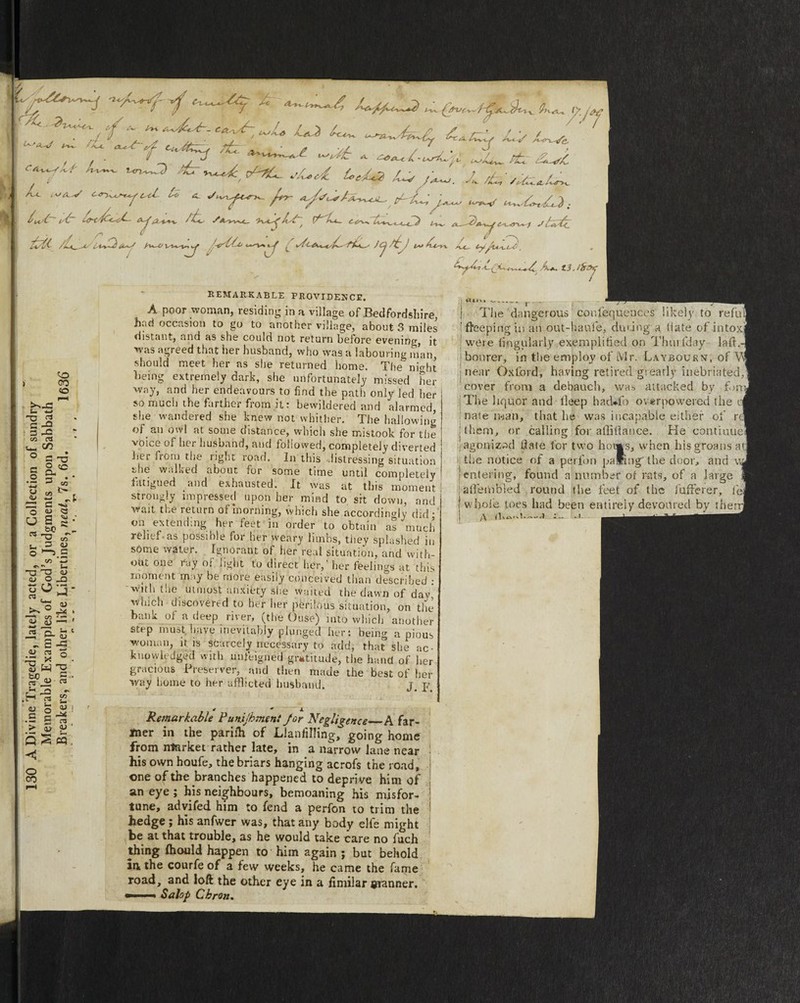 following proof of cruelty to animals happened in Covent Garden Mar. 17. 1809
The Driver of a market-cart, who had been wantonly beating his horse
was in the act of cutting the animal with a coach-whip, when the lash
caught him round the neck, & the shock locked his jaw. In this situation
he was conveyed to a surgeon for assistance, & his jaw was unlocked;
but it locked again the same night, & he continued in a dangerous state
till the Sunday morning following (March the 19th) when he expired.
English Chronicle, Mar. 23. 1809
REMARKABLE PROVIDENCE.
A poor woman, residing in a village of Bedfordshire,
had occasion to go to another village, about 3 miles
distant, and as she could not return before evening, it
was agreed that her husband, who was a labouring man,
should meet her as she returned home. The night
being extremely dark, she unfortunately missed her
way, and her endeavours to find the path only led her
so much the farther from it: bewildered and alarmed,
she wandered she knew not whither. The hallowing
of an owl at some distance, which she mistook for the
voice of her husband, and followed, completely diverted
her from the right road. In this distressing situation
she walked about for some time until completely
fatigued and exhausted. It was at this moment
strongly impressed upon her mind to sit down, and
wait the return of morning, which she accordingly did;
on extending her feet in order to obtain as much
relief as possible for her weary limbs, they splashed in
some water. Ignorant of her real situation, and with-
out one ray of light to direct her, her feelings at this
moment may be more easily conceived than described:
with the utmost anxiety she waited the dawn of day,
which discovered to her her perilous situation, on the
bank of a deep river, (the Ouse) into which another
step must have inevitably plunged her: being a pious
woman, it is scarcely necessary to add, that she ac-
knowledged with unfeigned gratitude, the hand of her
gracious Preserver, and then made the best of her
way home to her afflicted husband. J. F.
Remarkable Punishment for Negligence—A far-
mer in the parish of Llanfilling, going home
from market rather late, in a narrow lane near
his own house, the briars hanging across the road,
one of the branches happened to deprive him of
an eye; his neighbours, bemoaning his misfor-
tune, advised him to send a person to trim the
hedge; his answer was, that any body else might
be at that trouble, as he would take care no such
thing should happen to him again; but behold
in the course of a few weeks, he came the same
road, and lost the other eye in a similar manner.
—— Salop Chron.
The dangerous consequences likely to resul
sleeping in an out-house, during a state of intox
were singularly exemplified on Thursday last.-
bourer, in the employ of Mr. LAYBOURN, of W
near Oxford, having retired greatly inebriated,
cover from a debauch, was attacked by
The liquor and sleep had so overpowered the
nate man, that he was incapable either of re
them, or calling for assistance. He continue
agonized state for two hours, when his groans at
the notice of a person passing the door, and
entering, found a number of rats, of a large
assembled round the feet of the sufferer,
whole toes had been entirely devoured by them
130 A Divine Tragedie, lately acted, or a Collection of sundry
Memorable Examples of God's Judgments upon Sabbath
Breakers, and other like Libertines, neat, 7s. 6d. 1636